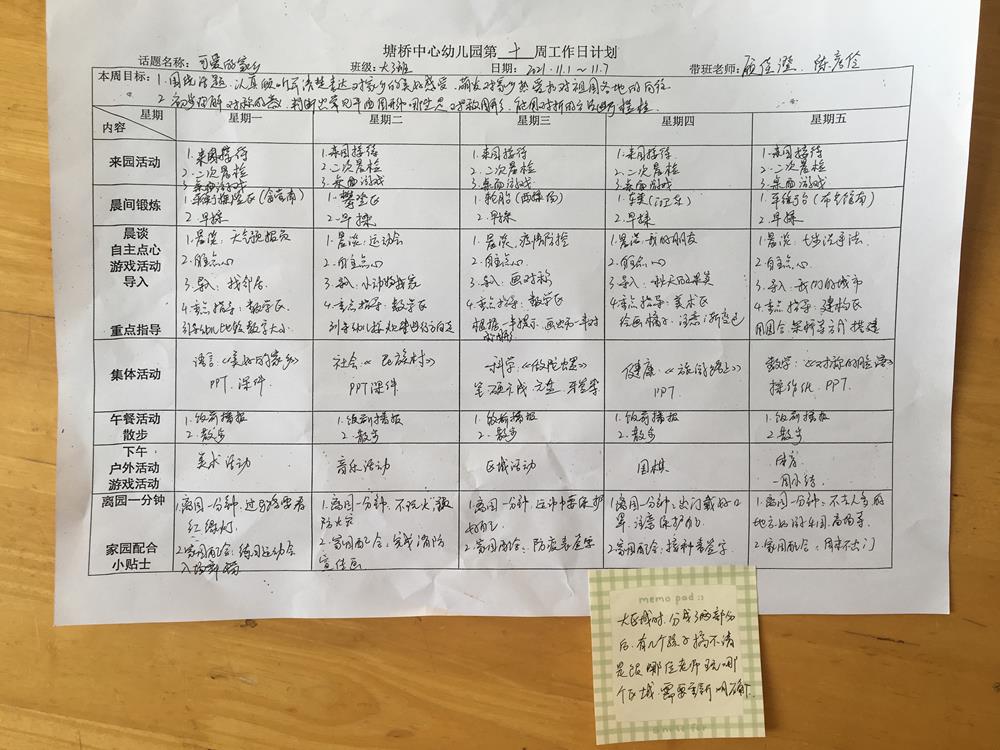 塘桥中心幼儿园第 十 周工作日计划
话题名称：可爱的家乡 班级：大3班 日期：2021.11.1～11.7 带班老师：
本周目标：1.围绕话题，认真倾听并清楚表达对家乡的美好感受，萌发对家乡热爱和对祖国各地的向往。
2.初步理解对称的意，判断出常见平面图形哪些是对称图形，能用对折的方法进行检核
星期 星期一 星期二 星期三 星期四 星期五
内容
来园活动 1.来园接待 1.来园接待 1.来园接待 1.来园接待 1.来园接待
2.二次晨检 2.二次晨检 2.二次晨检 2.二次晨检 2.二次晨检
3.桌面游戏 3.桌面游戏 3.桌面游戏 3.桌面游戏 3.桌面游戏
晨间锻炼 1. 1.攀登区 1.轮胎 1. 1.
2.早操 2.早操 2.早操 2.早操 2.早操
晨谈 1.晨谈：天气预报员 1.晨谈：运动会 1.晨谈：疫情防控 1.晨谈：我的朋友 1.晨谈：七步洗手法
自主点心 2.自主点心 2.自主点心 2.自主点心 2.自主点心 2.自主点心
游戏活动 3.导入：找邻居 3.导入： 3.导入：画对称 3.导入：秋天的果实 3.导入：我们的城市
导入 4.重点指导：数学区 4.重点指导：数学区 4.重点指导：数学区 4.重点指导：美术区 4.重点指导：建构区
重点指导 引导幼儿比较数字大小 引导幼儿 根据一半提示，画出另一半对 绘画橘子，注意渐变色 用围合、架桥等方式搭建
集体活动 语言：《美好的家乡》 社会：《民族村》 科学： 健康： 数学：
PPT、课件 PPT课件 PPT 操作纸、PPT
午餐活动 1.饭前播报 1.饭前播报 1.饭前播报 1.饭前播报 1.饭前播报
散步 2.散步 2.散步 2.散步 2.散步 2.散步
下午
户外活动 美术活动 音乐活动 区域活动 围棋 体育
游戏活动 一周小结
离园一分钟 1.离园一分钟：过马路要看 1.离园一分钟：不玩火， 1.离园一分钟：运动中要保护 1.离园一分钟：出门戴好口 1.离园一分钟：不去人多的
红绿灯 防火灾 好自己 罩，注意保护自己 地方
家园配合 2.家园配合：练习运动会 2.家园配合：完成消防 2.家园配合：防疫表签字 2.家园配合：接种表签字 2.家园配合：周末不出门
小贴士 入场舞蹈 宣传画
memo pad :)
大区域时，分成了两部分
后，有几个孩子搞不清
是跟哪位老师玩哪
个区域，需要重新明确